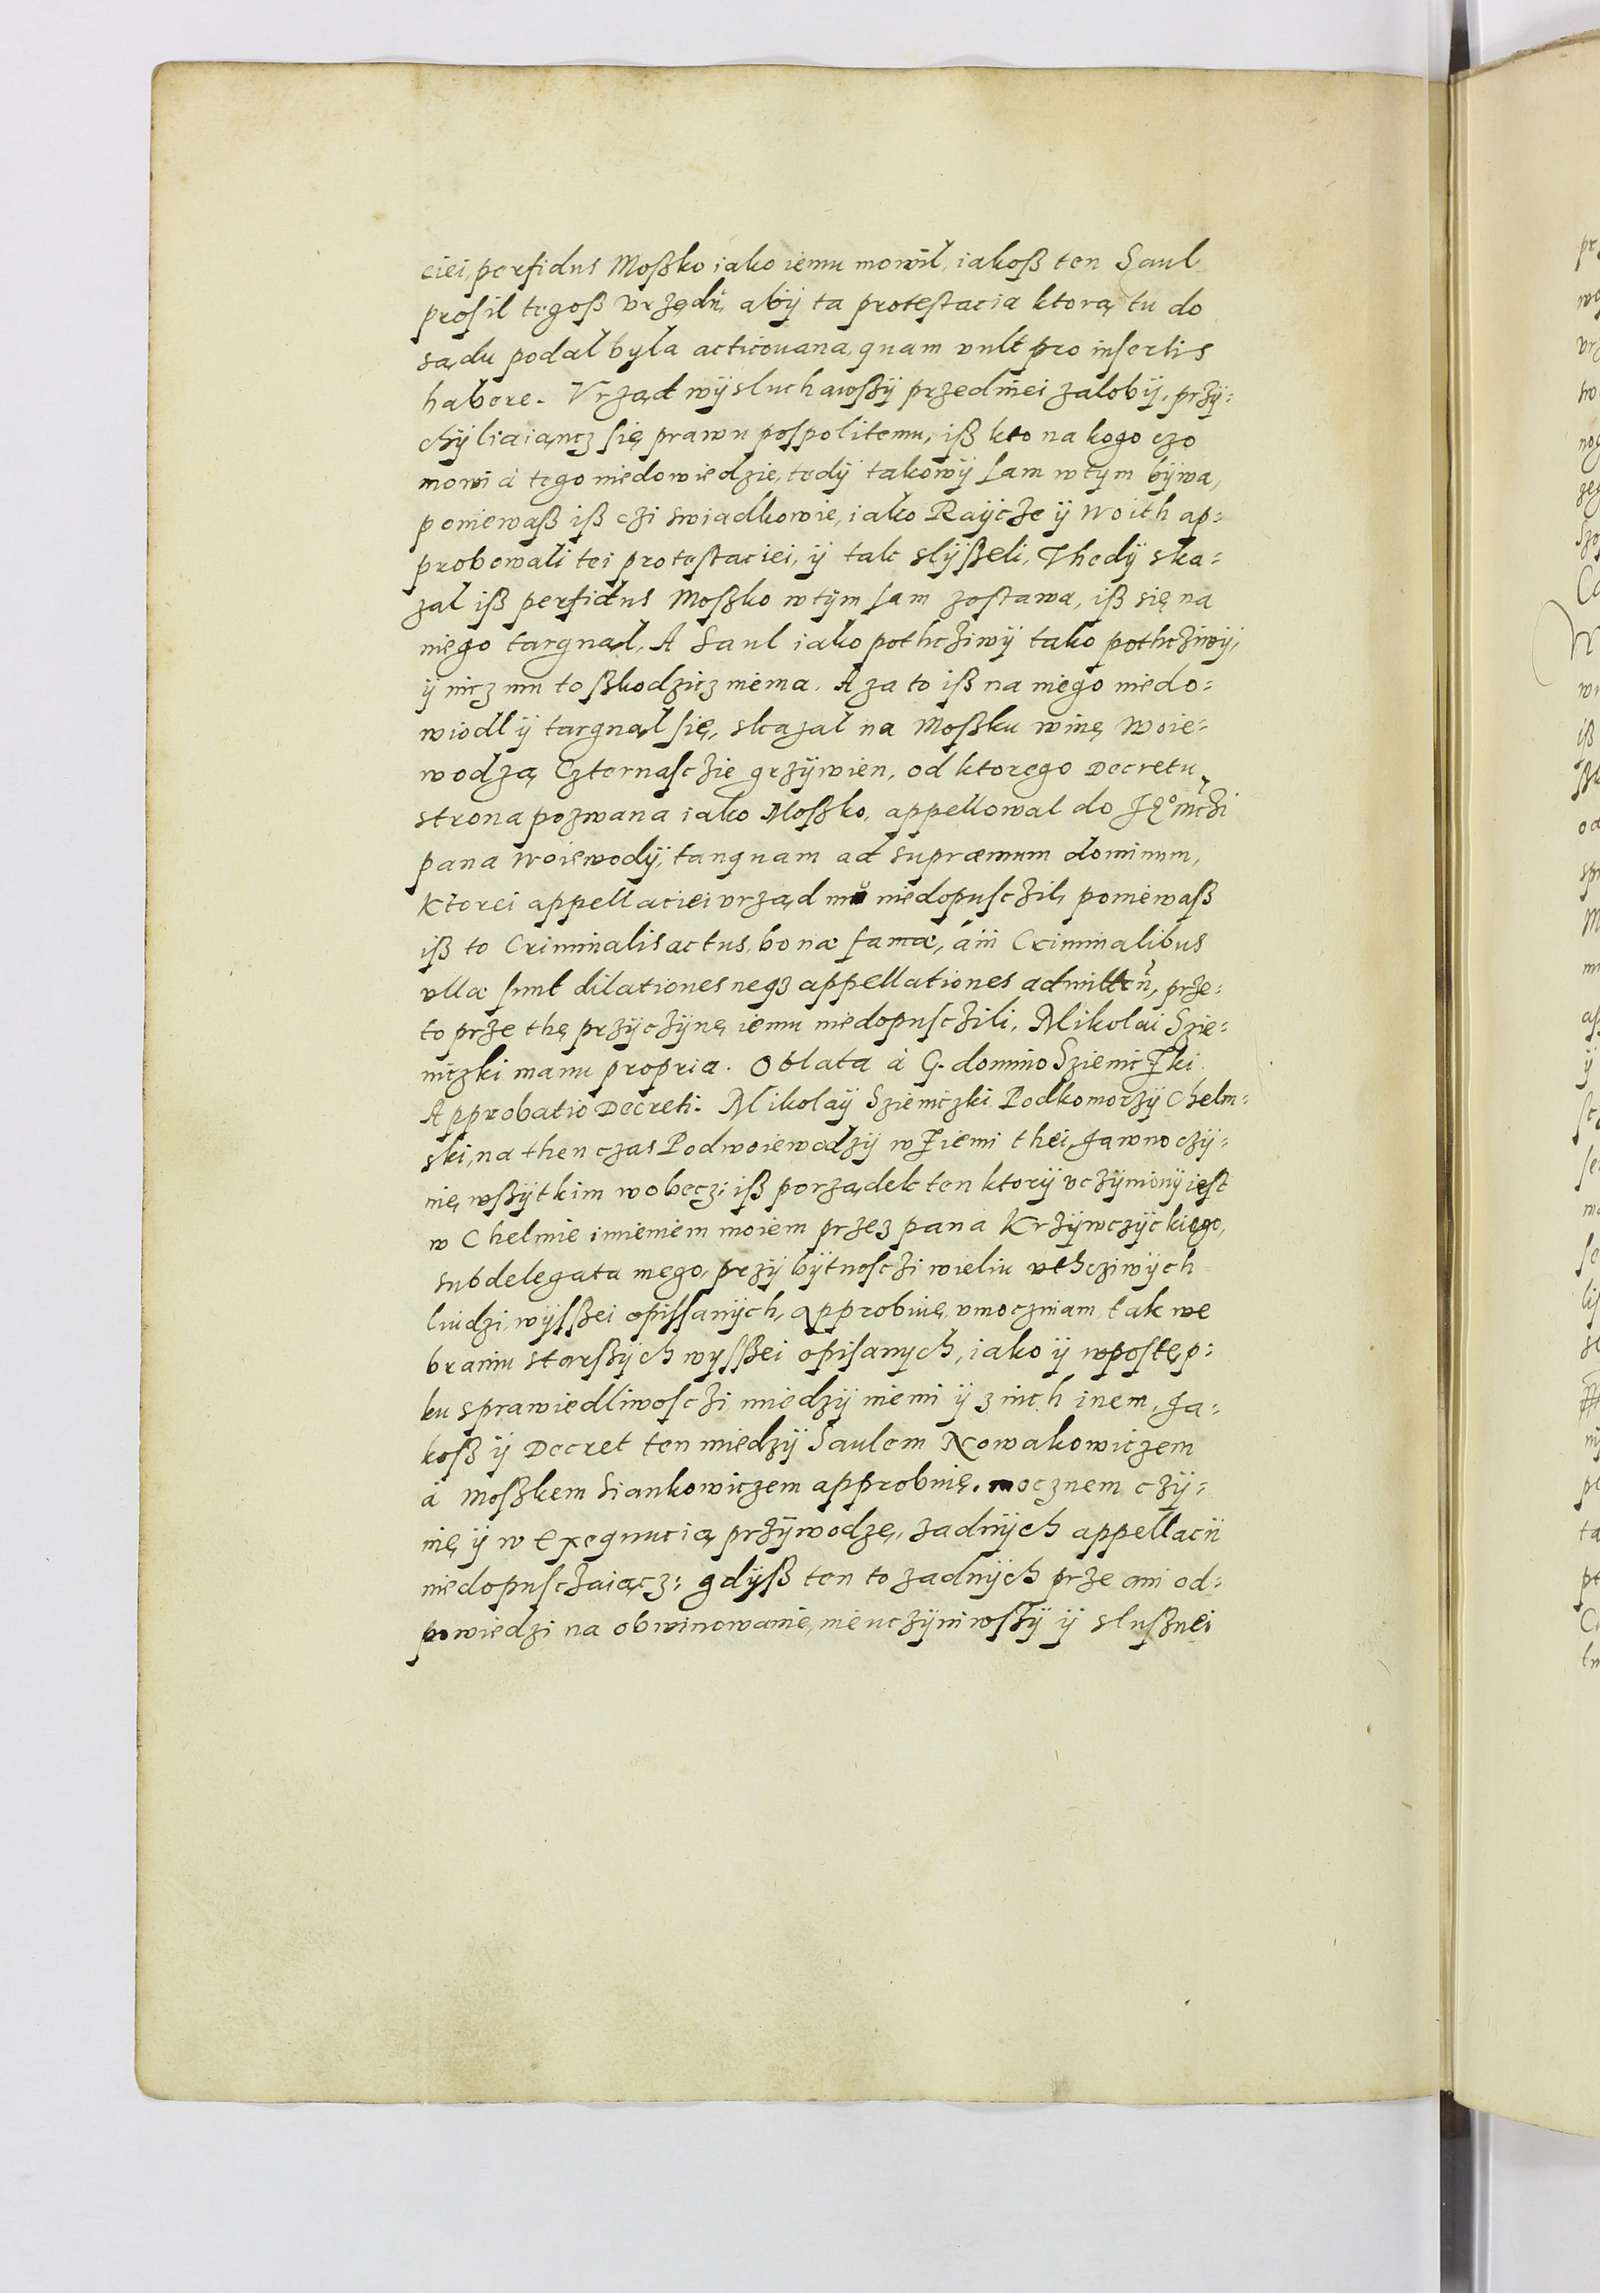 ciei, perfidus Moßko iako iemu mowil, iakoß ten Saul
prosil tegoß vrzędu, abÿ ta protestacia ktorą tu do
sądu podal była acticouana, quam vult pro insertis
habere. Vrząd wÿsluchawßÿ przedmei zalobÿ, przÿ:
chÿliaiąncz się prawu pospolitemu, iß kto na kogo czo
mowi à tego niedowiedzie, tedÿ takowÿ sam wtÿm bÿwa,
poniewaß iß czi swiadkowie, iako Raÿcze ÿ woith ap:
probowali tei protestaciei, ÿ tak slÿßeli, Thedÿ ska:
zal iß perfidus Moßko wtÿm sam zostawa, iß się na
niego targnął, A Saul iako pothcziwÿ tako pothcziwÿ,
ÿ nicz mu to ßkodzicz niema. A za to iß na niego niedo:
wiodl ÿ targnął się, skazal na Moßku winę woie:
wodzą Czternasczie grzÿwien, od ktorego Decretu
strona pozwana iako Moßko, appellowal do Jego mczi
pana woiewodÿ, tanquam ad supraemum dominum,
Ktorei appellaciei vrząd mu niedopusczil, poniewaß
iß to Criminalis actus, bonae famae, à in Criminalibus
vllae sunt dilationes neqz appellationes admitten, prze:
to prze thę przÿczÿnę iemu niedopusczili, Mikolai Szie:
niczki manu propria. Oblata à G. domino Szieniczki
Approbatio Decreti. Mikolaÿ Szieniczki Podkomorzÿ Chelm:
ski, na then czas Podwoiewodzÿ w Ziemi thei, Jawno czÿ:
nię wßÿtkim wobecz: iß porządek ten ktorÿ vczÿnionÿ iest
w Chelmie imieniem moiem przez pana Krzÿwczÿckiego,
subdelegata mego, przÿ bÿtnosczi wieliu vthcziwÿch
liudzi, wÿsßei opissanÿch, approbuię, vmoczniam, tak we
braniu starßÿch wysßei opisanych, iako ÿ wpostęp:
ku sprawiedliwosczi miedzÿ niemi ÿ z nich inem, Ja:
koß ÿ Decret ten miedzÿ Saulem Nowakowiczem
à Moßkem Siankowiczem approbuię, mocznem czÿ:
nię ÿ w Exequucią przÿwodzę, zadnÿch appellacii
niedopusczaiącz: gdÿß ten to zadnÿch prze ani od:
powiedzi na obwinowanie, nieuczÿniwßÿ ÿ slußnei